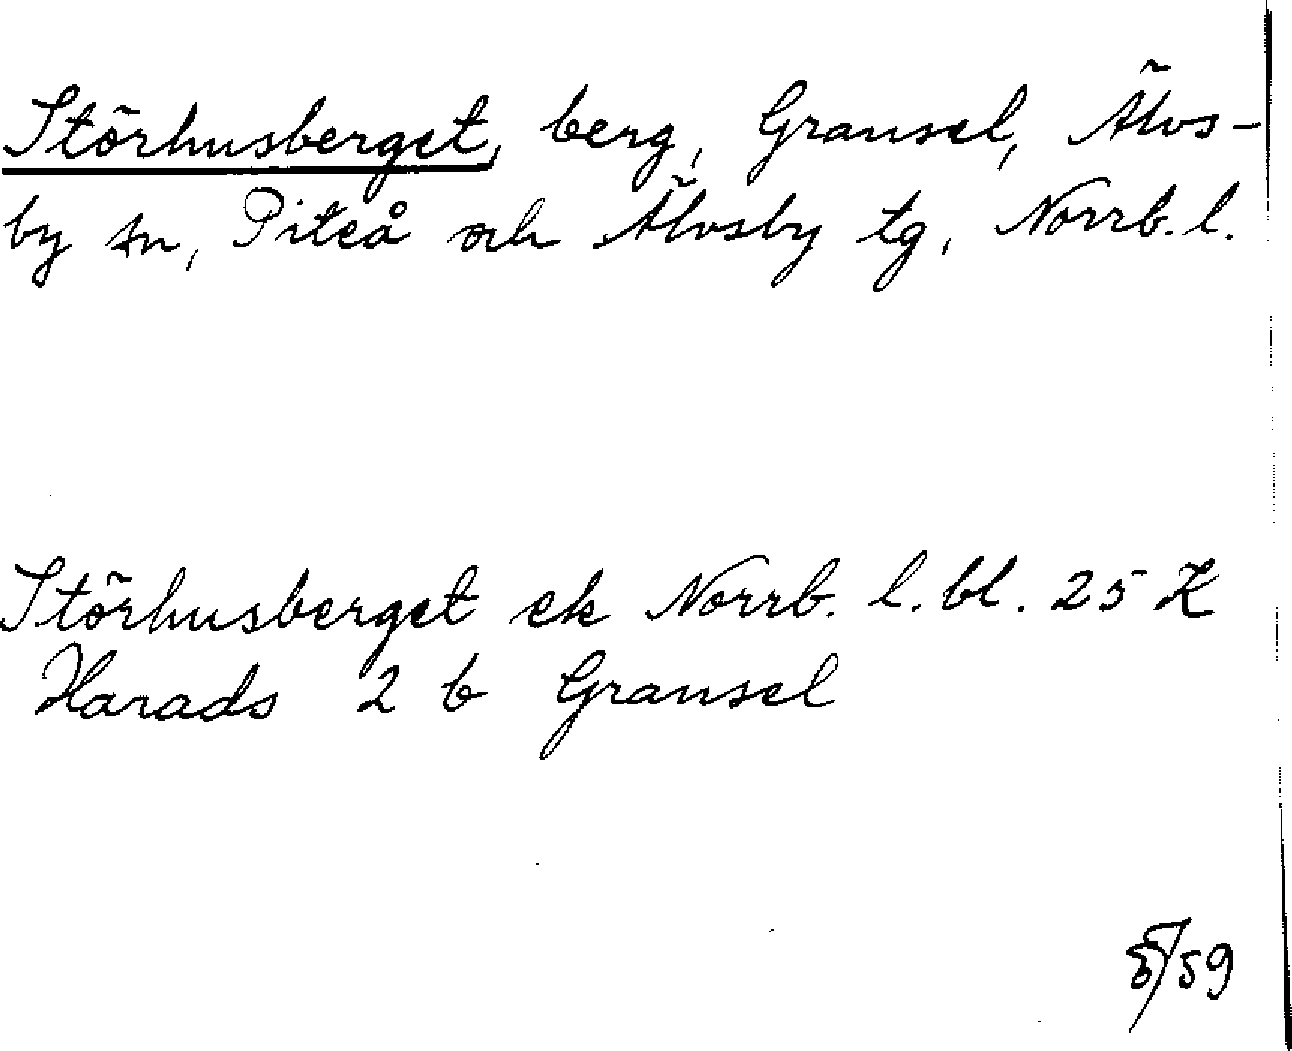 Störhusberget, berg, Gransel, Älvs-
by sn, Piteå och Älvsby tg, Norrb. l.
Störhusberget ek Norrb. l. bl. 25 K
Harads 2 b Gransel
/59